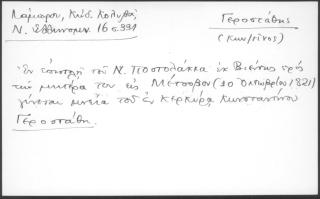 Λάμπρου, Κώδ. Κολυβᾶ,
Ν. Ἑλληνομν. 16 σ. 991
Γεροστάθης
(Κων/τῖνος)
Ἐν ἐπιστολῇ τοῦ Ν. Ποστολάκα ἐκ Βιέννης πρὸς
τὴν μητέρα του εἰς Μέτσοβον (20 Ὀκτωβρίου 1821)
γίνεται μνεία τοῦ ἐν Κερκύρᾳ Κωνσταντίνου
Γεροστάθη.